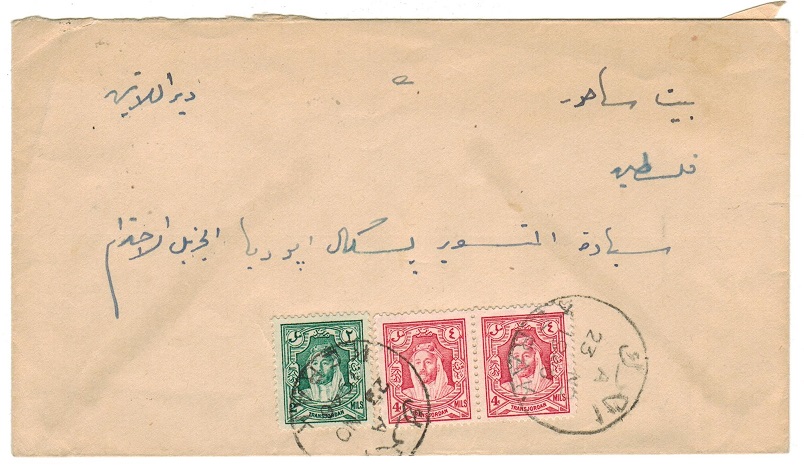 بيت ساحور دير اللاتين
فلسطين
سيادة المنسنيور بسكال ابوديا الجزيل الاحترام
٢ MILS TRANSJORDAN
٤ ٤
4 MILS TRANSJORDAN
4 MILS TRANSJORDAN
23 A
23 A